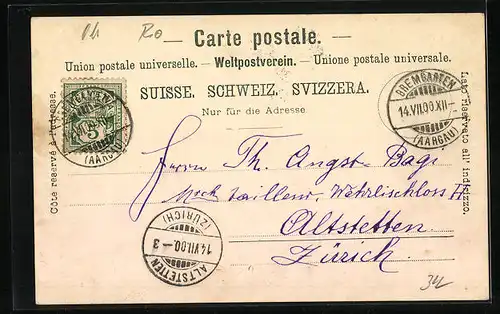 Ph Ro
Carte postale.
Union postale universelle. – Weltpostverein. – Unione postale universale.
SUISSE. SCHWEIZ. SVIZZERA.
Nur für die Adresse.
Côte réservé à l'adresse.
Lato riservato all' indirizzo.
BREMGARTEN
14.VII.00.XII–
(AARGAU)
BREMGARTEN
5
(AARGAU)
Herrn Th. Angst-
taillem,
Altstetten.
Zürich.
(ZÜRICH)
14.VII.00.–3
ALTSTETTEN
34